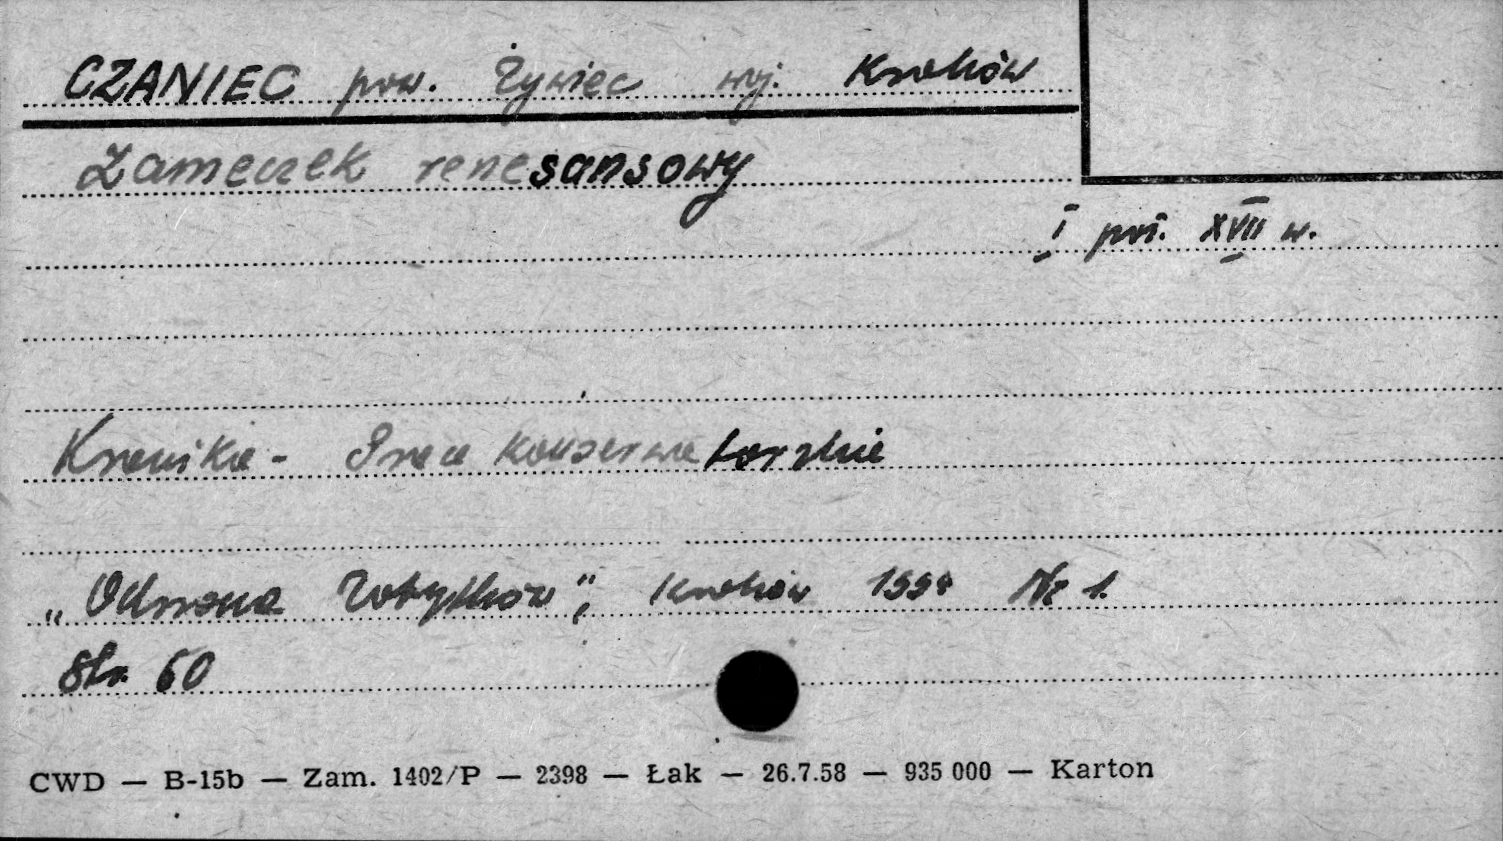 CZANIEC pow. Żywiec woj. Kraków
Zameczek renesansowy
I poł. XVII w.
Kronika - Prace konserwatorskie
„Ochrona Zabytków", Kraków Nr 1.
Str. 60
CWD — B-15b — Zam. 1402/P — 2398 — Łak — 26.7.58 — 935 000 — Karton